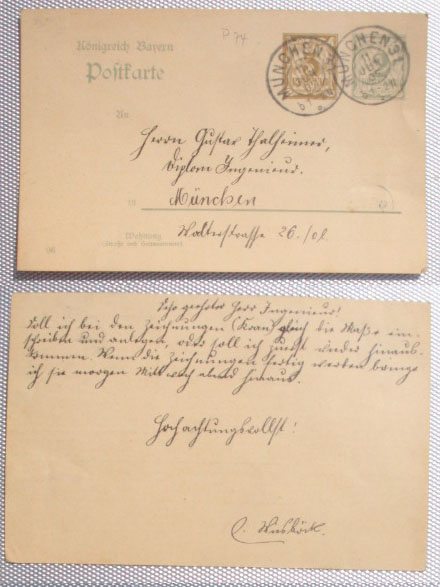 P 74
Königreich Bayern
Postkarte
An
Herrn Gustav Thalheimer,
Diplom Ingenieur.
in München
Wohnung
(Straße und Hausnummer)
Walterstrasse 26./0l.
MÜNCHEN
MÜNCHEN 31.
Sehr geehrter Herr Ingenieur!
Soll ich bei den Zeichnungen (Kran) gleich die Maße ein-
schreiben und anlegen, oder soll ich zuerst wieder hinaus-
kommen. Wenn die Zeichnungen fertig werden bringe
ich sie morgen Mittwoch abend hinaus.
Hochachtungsvollst!
C.